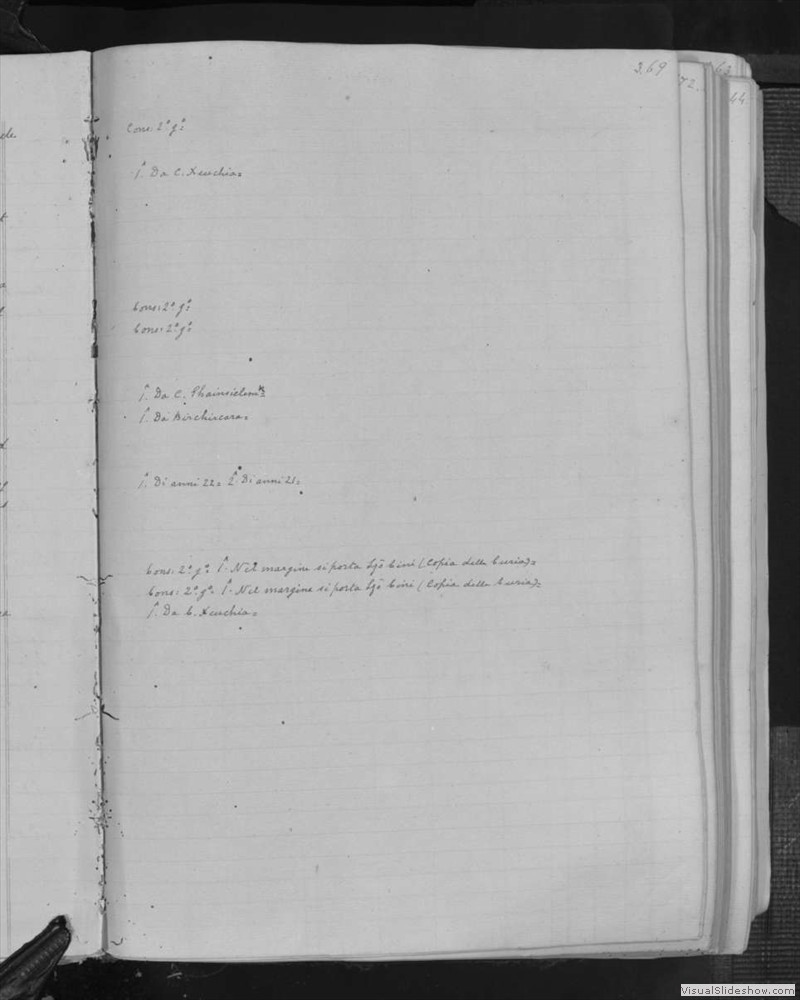 3.69
72.
63
44
de
Cons: 2º gº
1º. Da C. Xeuchia=
Cons: 2º gº
Cons: 2º gº
1º. Da C. Ghainsielem=
1º. Da Birchircara=
1º. Di anni 22= 2º. Di anni 21=
Cons: 2º gº 1º. Nel margine si porta Cini (Copia della Curia)=
Cons: 2º gº 1º. Nel margine si porta Cini (Copia della Curia)=
1º. Da C. Xeuchia=
VisualSlideshow.com